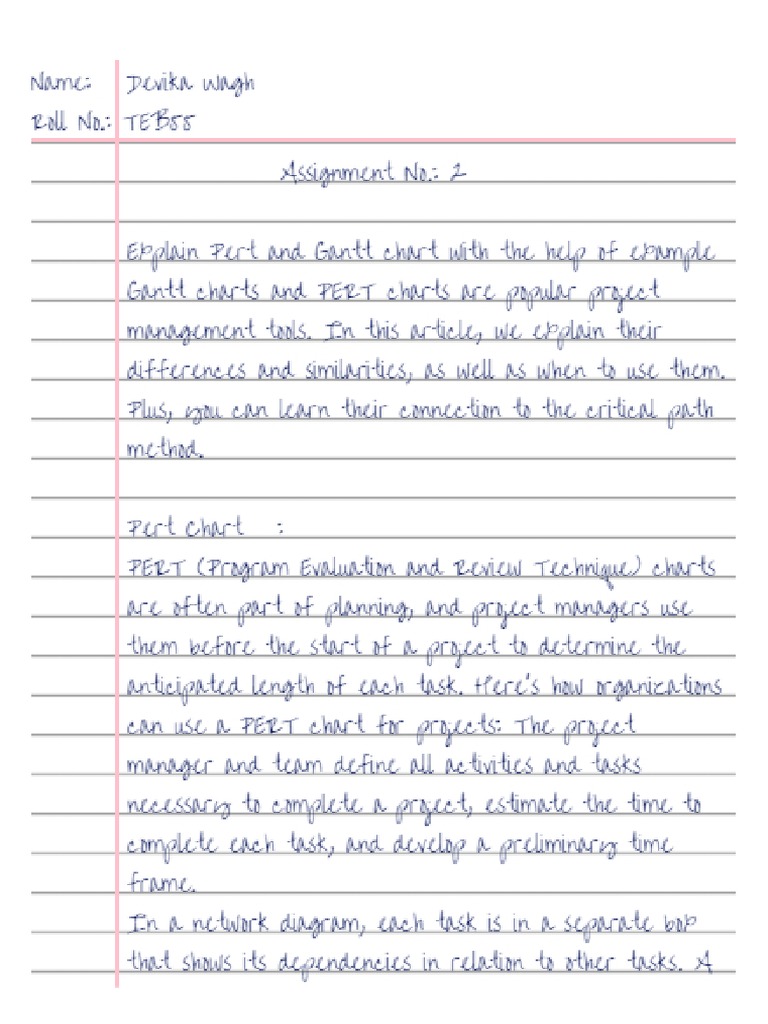 Name: Devika Wagh
Roll No.: TEB55
Assignment No.: 2
Explain Pert and Gantt chart with the help of example
Gantt charts and PERT charts are popular project
management tools. In this article, we explain their
differences and similarities, as well as when to use them.
Plus, you can learn their connection to the critical path
method.
Pert Chart :
PERT (Program Evaluation and Review Technique) charts
are often part of planning, and project managers use
them before the start of a project to determine the
anticipated length of each task. Here's how organizations
can use a PERT chart for projects: The project
manager and team define all activities and tasks
necessary to complete a project, estimate the time to
complete each task, and develop a preliminary time
frame.
In a network diagram, each task is in a separate box
that shows its dependencies in relation to other tasks. A